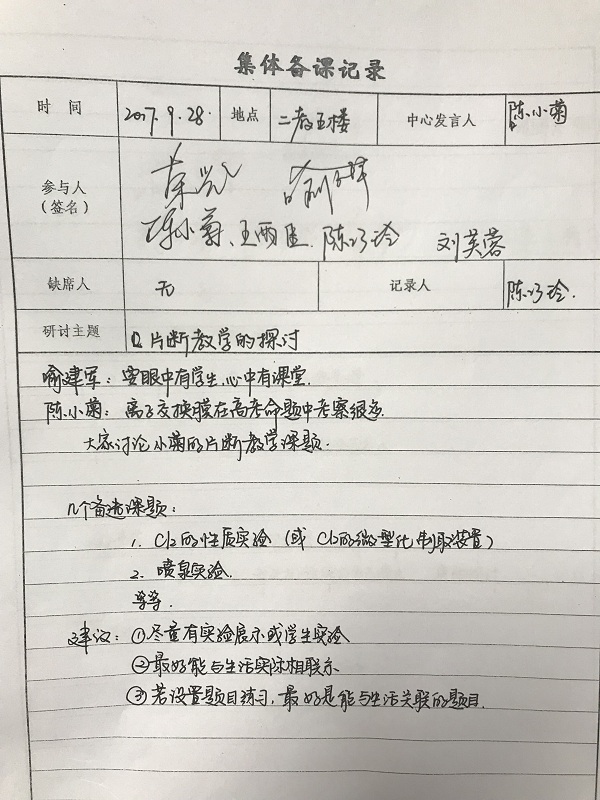 集体备课记录
时 间 2017.9.28. 地点 二教五楼 中心发言人 陈小菊
参与人
(签名)
陈小菊、王丽 陈巧玲 刘芙蓉
缺席人 无 记录人 陈巧玲.
研讨主题 片断教学的探讨
喻建军：要眼中有学生,心中有课堂.
陈小菊：离子交换膜在高考命题中考察很多
大家讨论小菊的片断教学课题.
几个备选课题：
1. Cl2的性质实验（或 Cl2的微型化制取装置）
2. 喷泉实验.
等等.
建议：①尽量有实验展示或学生实验
②最好能与生活实际相联系
③若设置题目练习,最好是能与生活关联的题目.